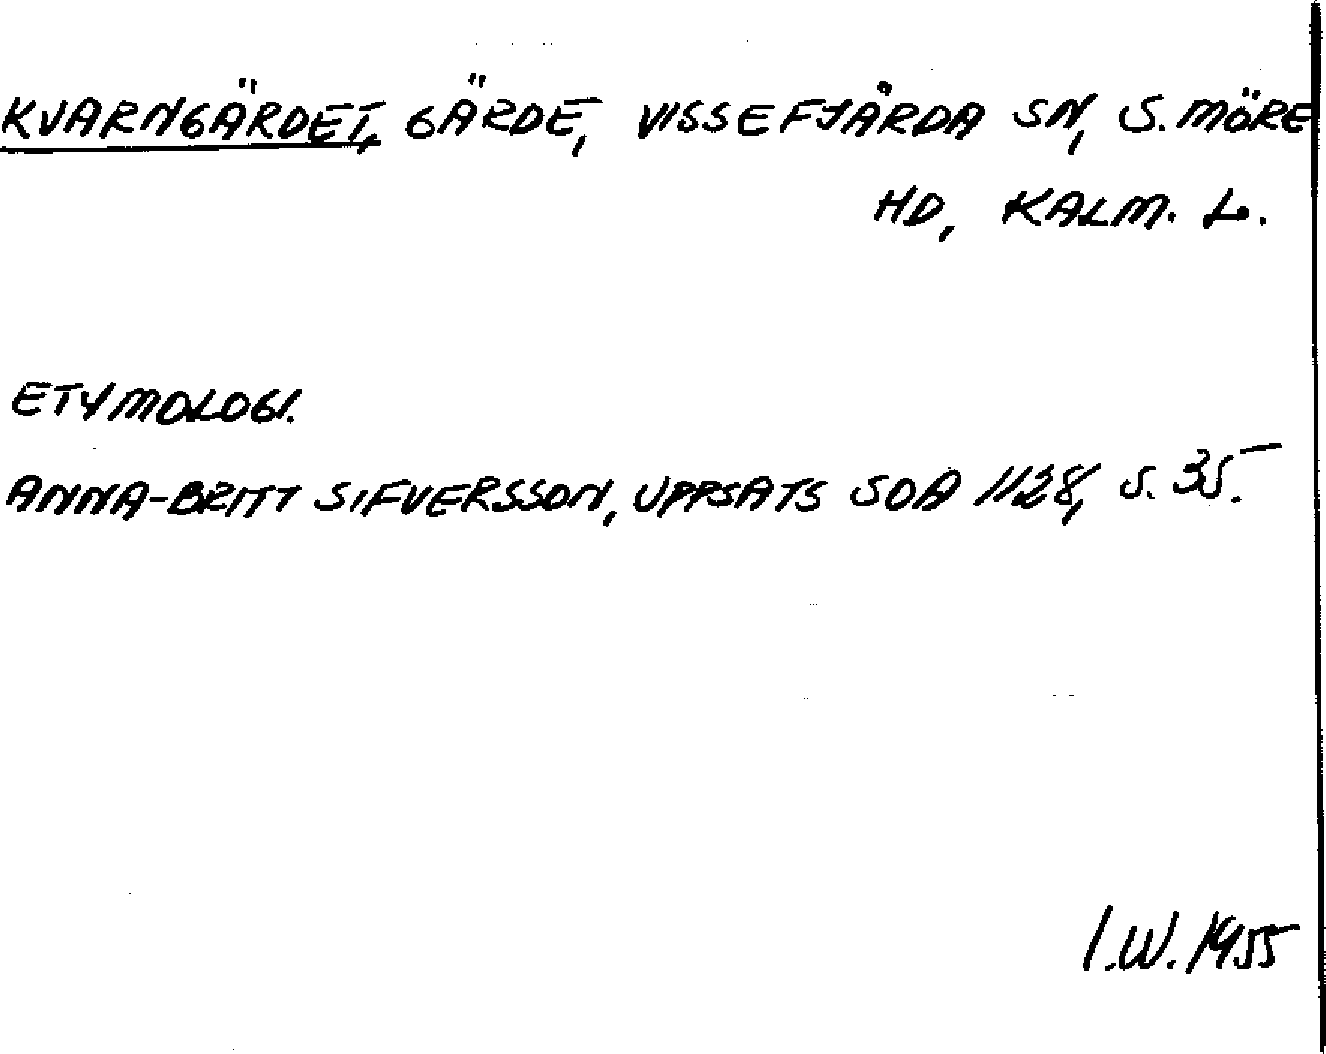 KVARNGÄRDET, GÄRDE, VISSEFJÄRDA SN, S. MÖRE
HD, KALM. L.
ETYMOLOGI.
ANNA-BRITT SIFVERSSON, UPPSATS SOA 1128, S. 35.
I.W. 1955